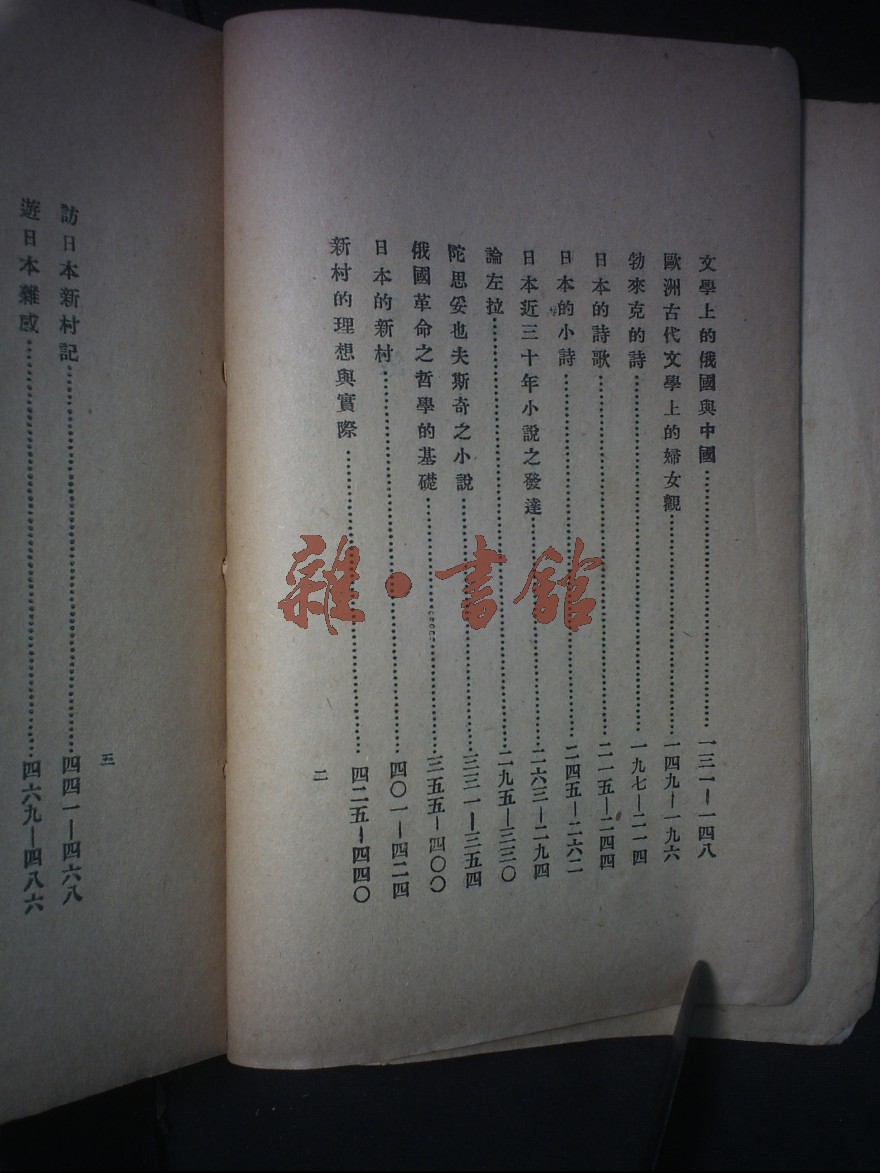 文學上的俄國與中國……一三一—一四八
歐洲古代文學上的婦女觀……一四九—一九六
勃來克的詩……一九七—二一四
日本的詩歌……二一五—二四四
日本的小詩……二四五—二六二
日本近三十年小說之發達……二六三—二九四
論左拉……二九五—三三〇
陀思妥也夫斯奇之小說……三三一—三五四
俄國革命之哲學的基礎……三五五—四〇〇
日本的新村……四〇一—四二四
新村的理想與實際……四二五—四四〇
二
訪日本新村記……四四一—四六八
遊日本雜感……四六九—四八六
三
雜·書館